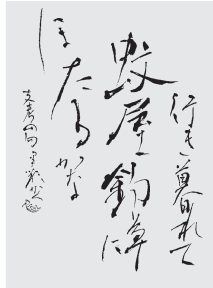 行き暮れて
蚊屋釣草に
ほたるかな
支考の句